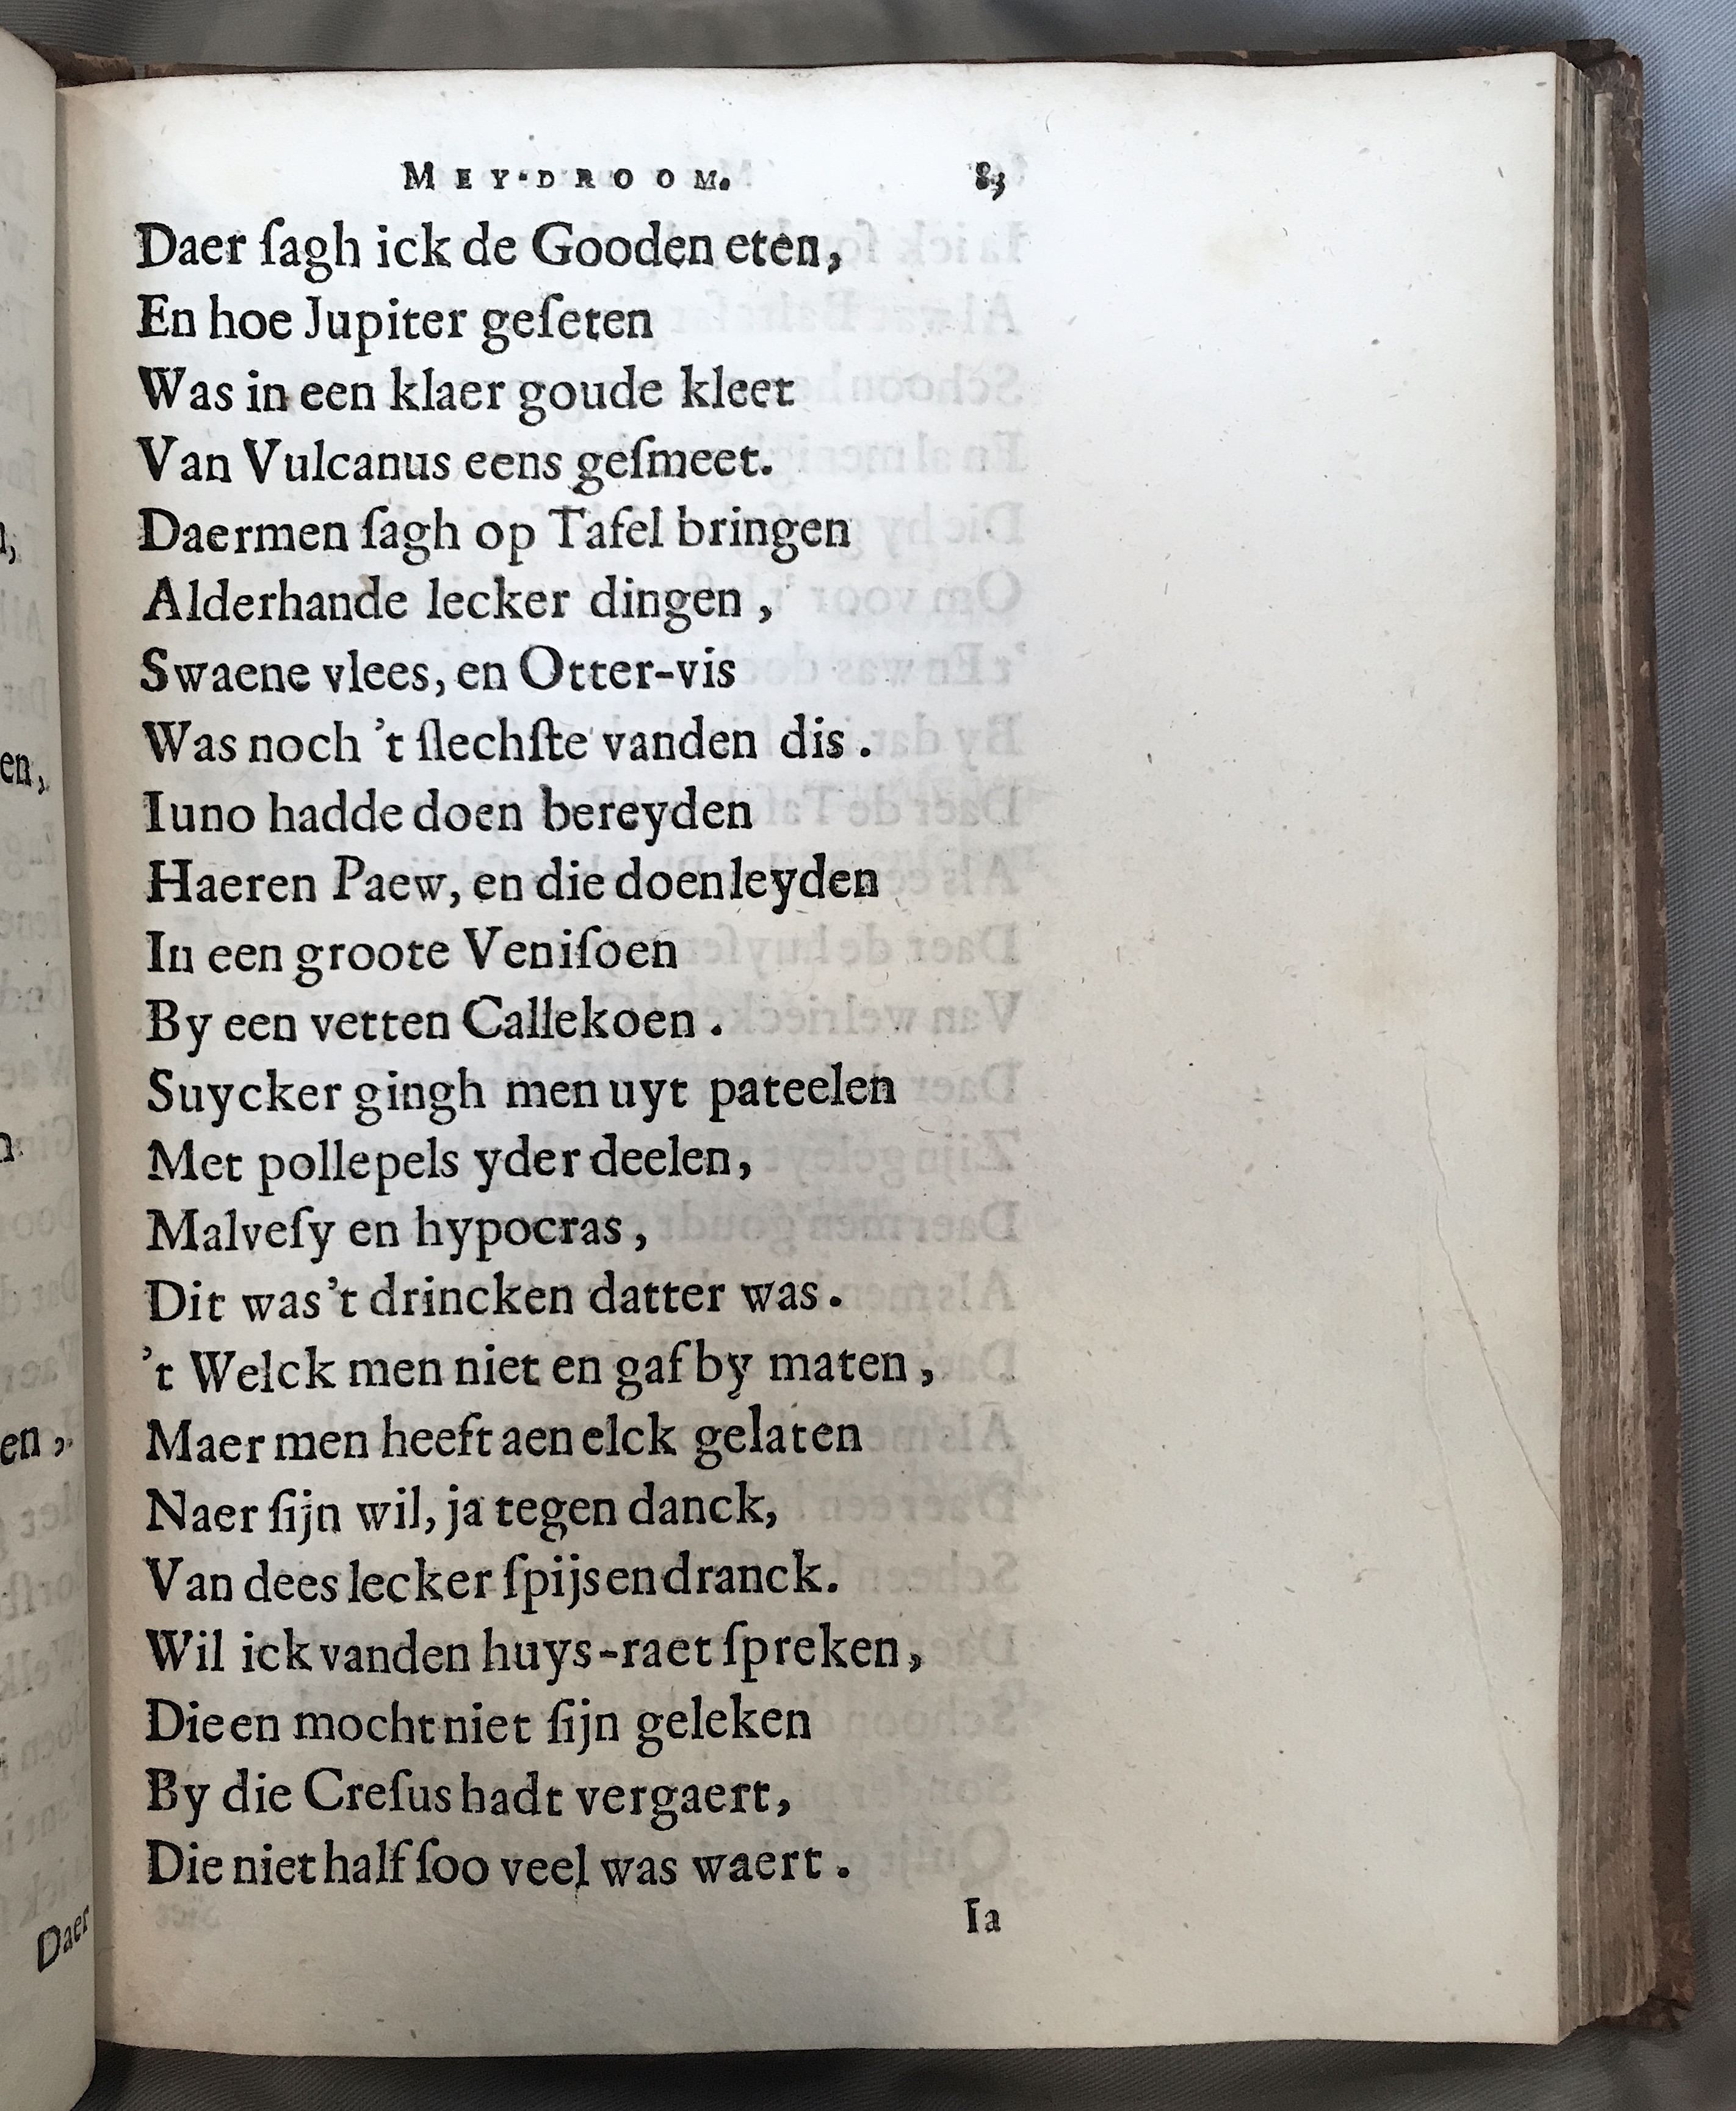 MEY-DROOM. 83
Daer ſagh ick de Gooden eten,
En hoe Jupiter geſeten
Was in een klaer goude kleet
Van Vulcanus eens geſmeet.
Daermen ſagh op Tafel bringen
Alderhande lecker dingen,
Swaene vlees, en Otter-vis
Was noch 't ſlechſte vanden dis.
Iuno hadde doen bereyden
Haeren Paew, en die doen leyden
In een groote Veniſoen
By een vetten Callekoen.
Suycker gingh men uyt pateelen
Met pollepels yder deelen,
Malveſy en hypocras,
Dit was 't drincken datter was.
't Welck men niet en gaf by maten,
Maer men heeft aen elck gelaten
Naer ſijn wil, ja tegen danck,
Van dees lecker ſpijs en dranck.
Wil ick vanden huys-raet ſpreken,
Die en mocht niet ſijn geleken
By die Creſus hadt vergaert,
Die niet half ſoo veel was waert.
Ia
Daer